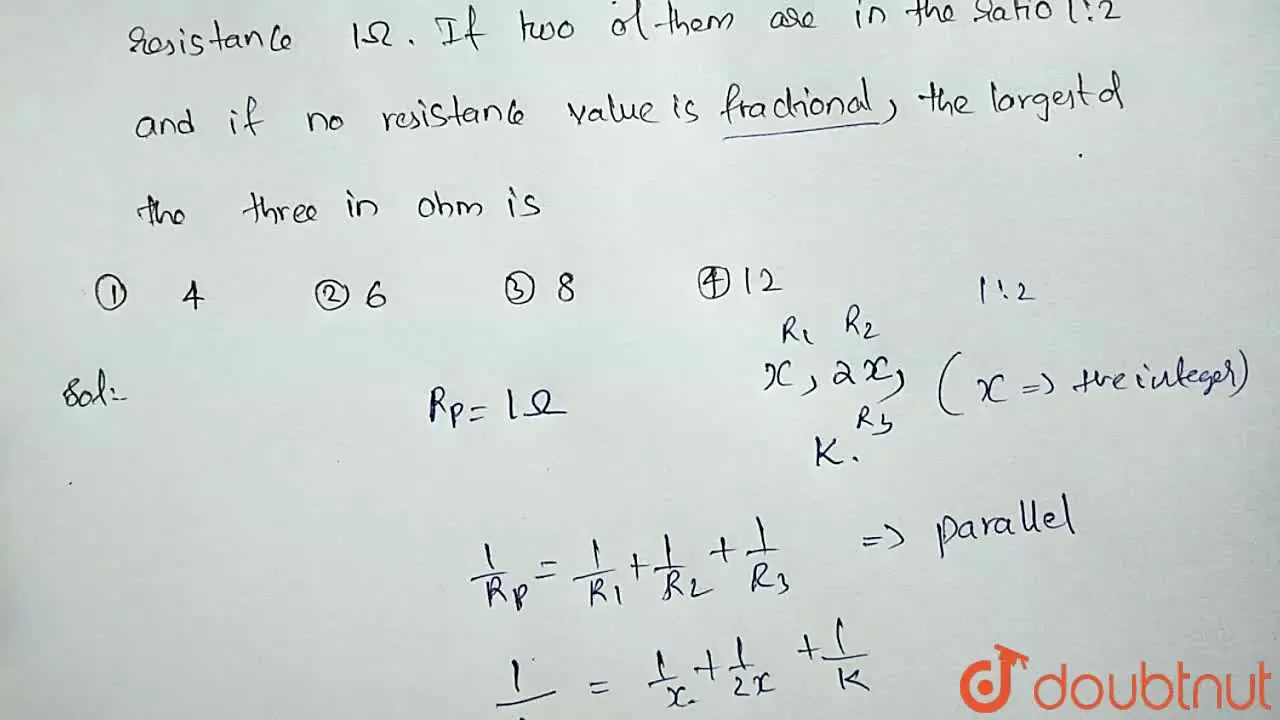 resistance 1Ω. If two of them are in the ratio 1:2
and if no resistance value is fractional, the largest of
the three in ohm is
① 4 ② 6 ③ 8 ④ 12
1:2
R1 R2
Sol:- Rp = 1Ω x, 2x, (x => +ve integer)
R3
K.
1/Rp = 1/R1 + 1/R2 + 1/R3 => parallel
1/ = 1/x + 1/2x + 1/K
doubtnut